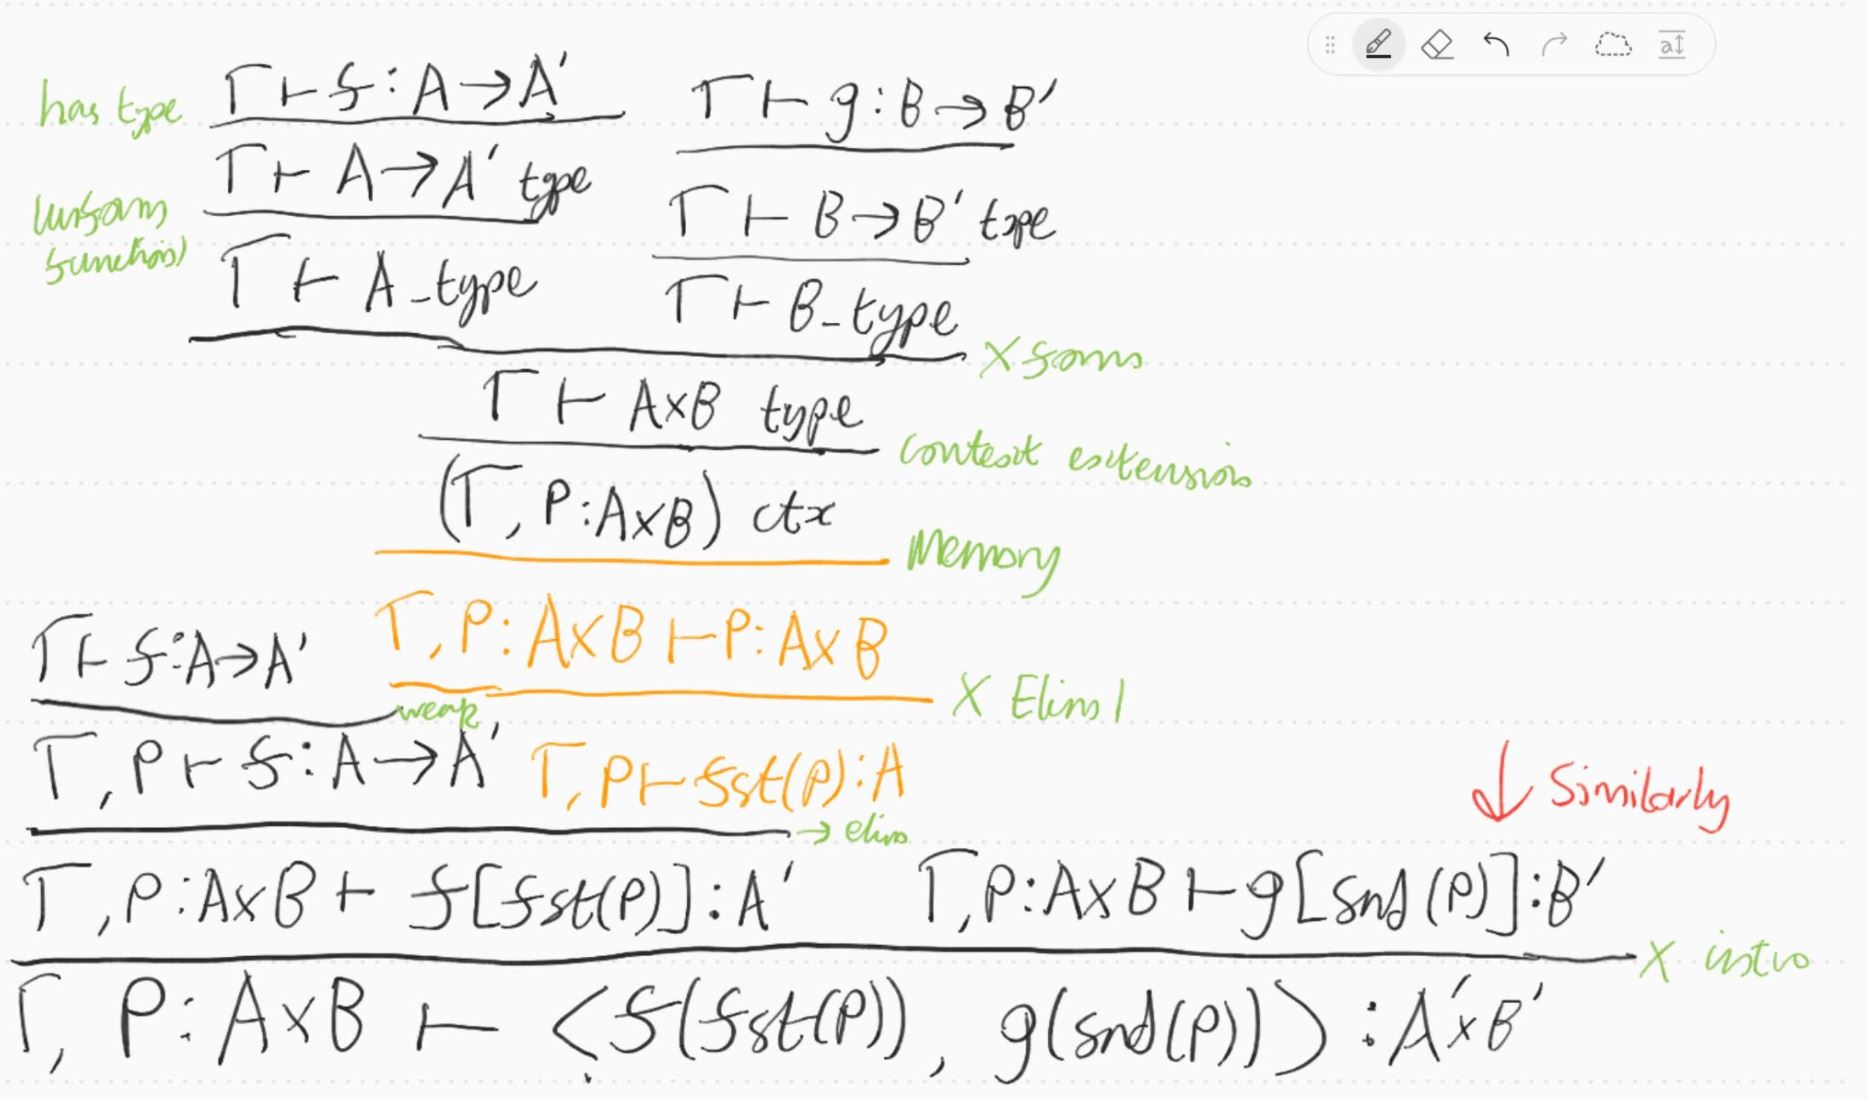 has type Γ ⊢ f : A → A' Γ ⊢ g : B → B'
Γ ⊢ A → A' type Γ ⊢ B → B' type
(unform
function)
Γ ⊢ A_type Γ ⊢ B_type
× form
Γ ⊢ A×B type
context extension
(Γ, P : A×B) ctx
Memory
Γ ⊢ f : A → A' Γ, P : A×B ⊢ P : A×B
weak × Elim 1
Γ, P ⊢ f : A → A' Γ, P ⊢ fst(P) : A
→ elim
↓ Similarly
Γ, P : A×B ⊢ f[fst(P)] : A' Γ, P : A×B ⊢ g[snd(P)] : B'
× intro
Γ, P : A×B ⊢ <f(fst(P)), g(snd(P))> : A'×B'